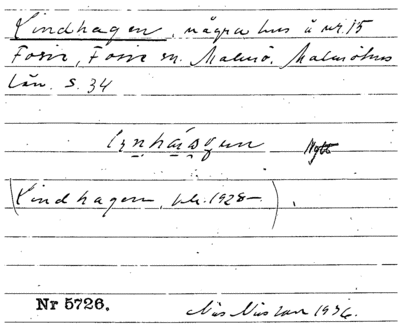 Lindhagen, några hus å nr. 15
Fosie, Fosie sn. Malmö. Malmöhus
län. S. 34
Nytt
(Lindhagen, bl. 1928–).
Nr 5726. Nils Nilsson 1936.